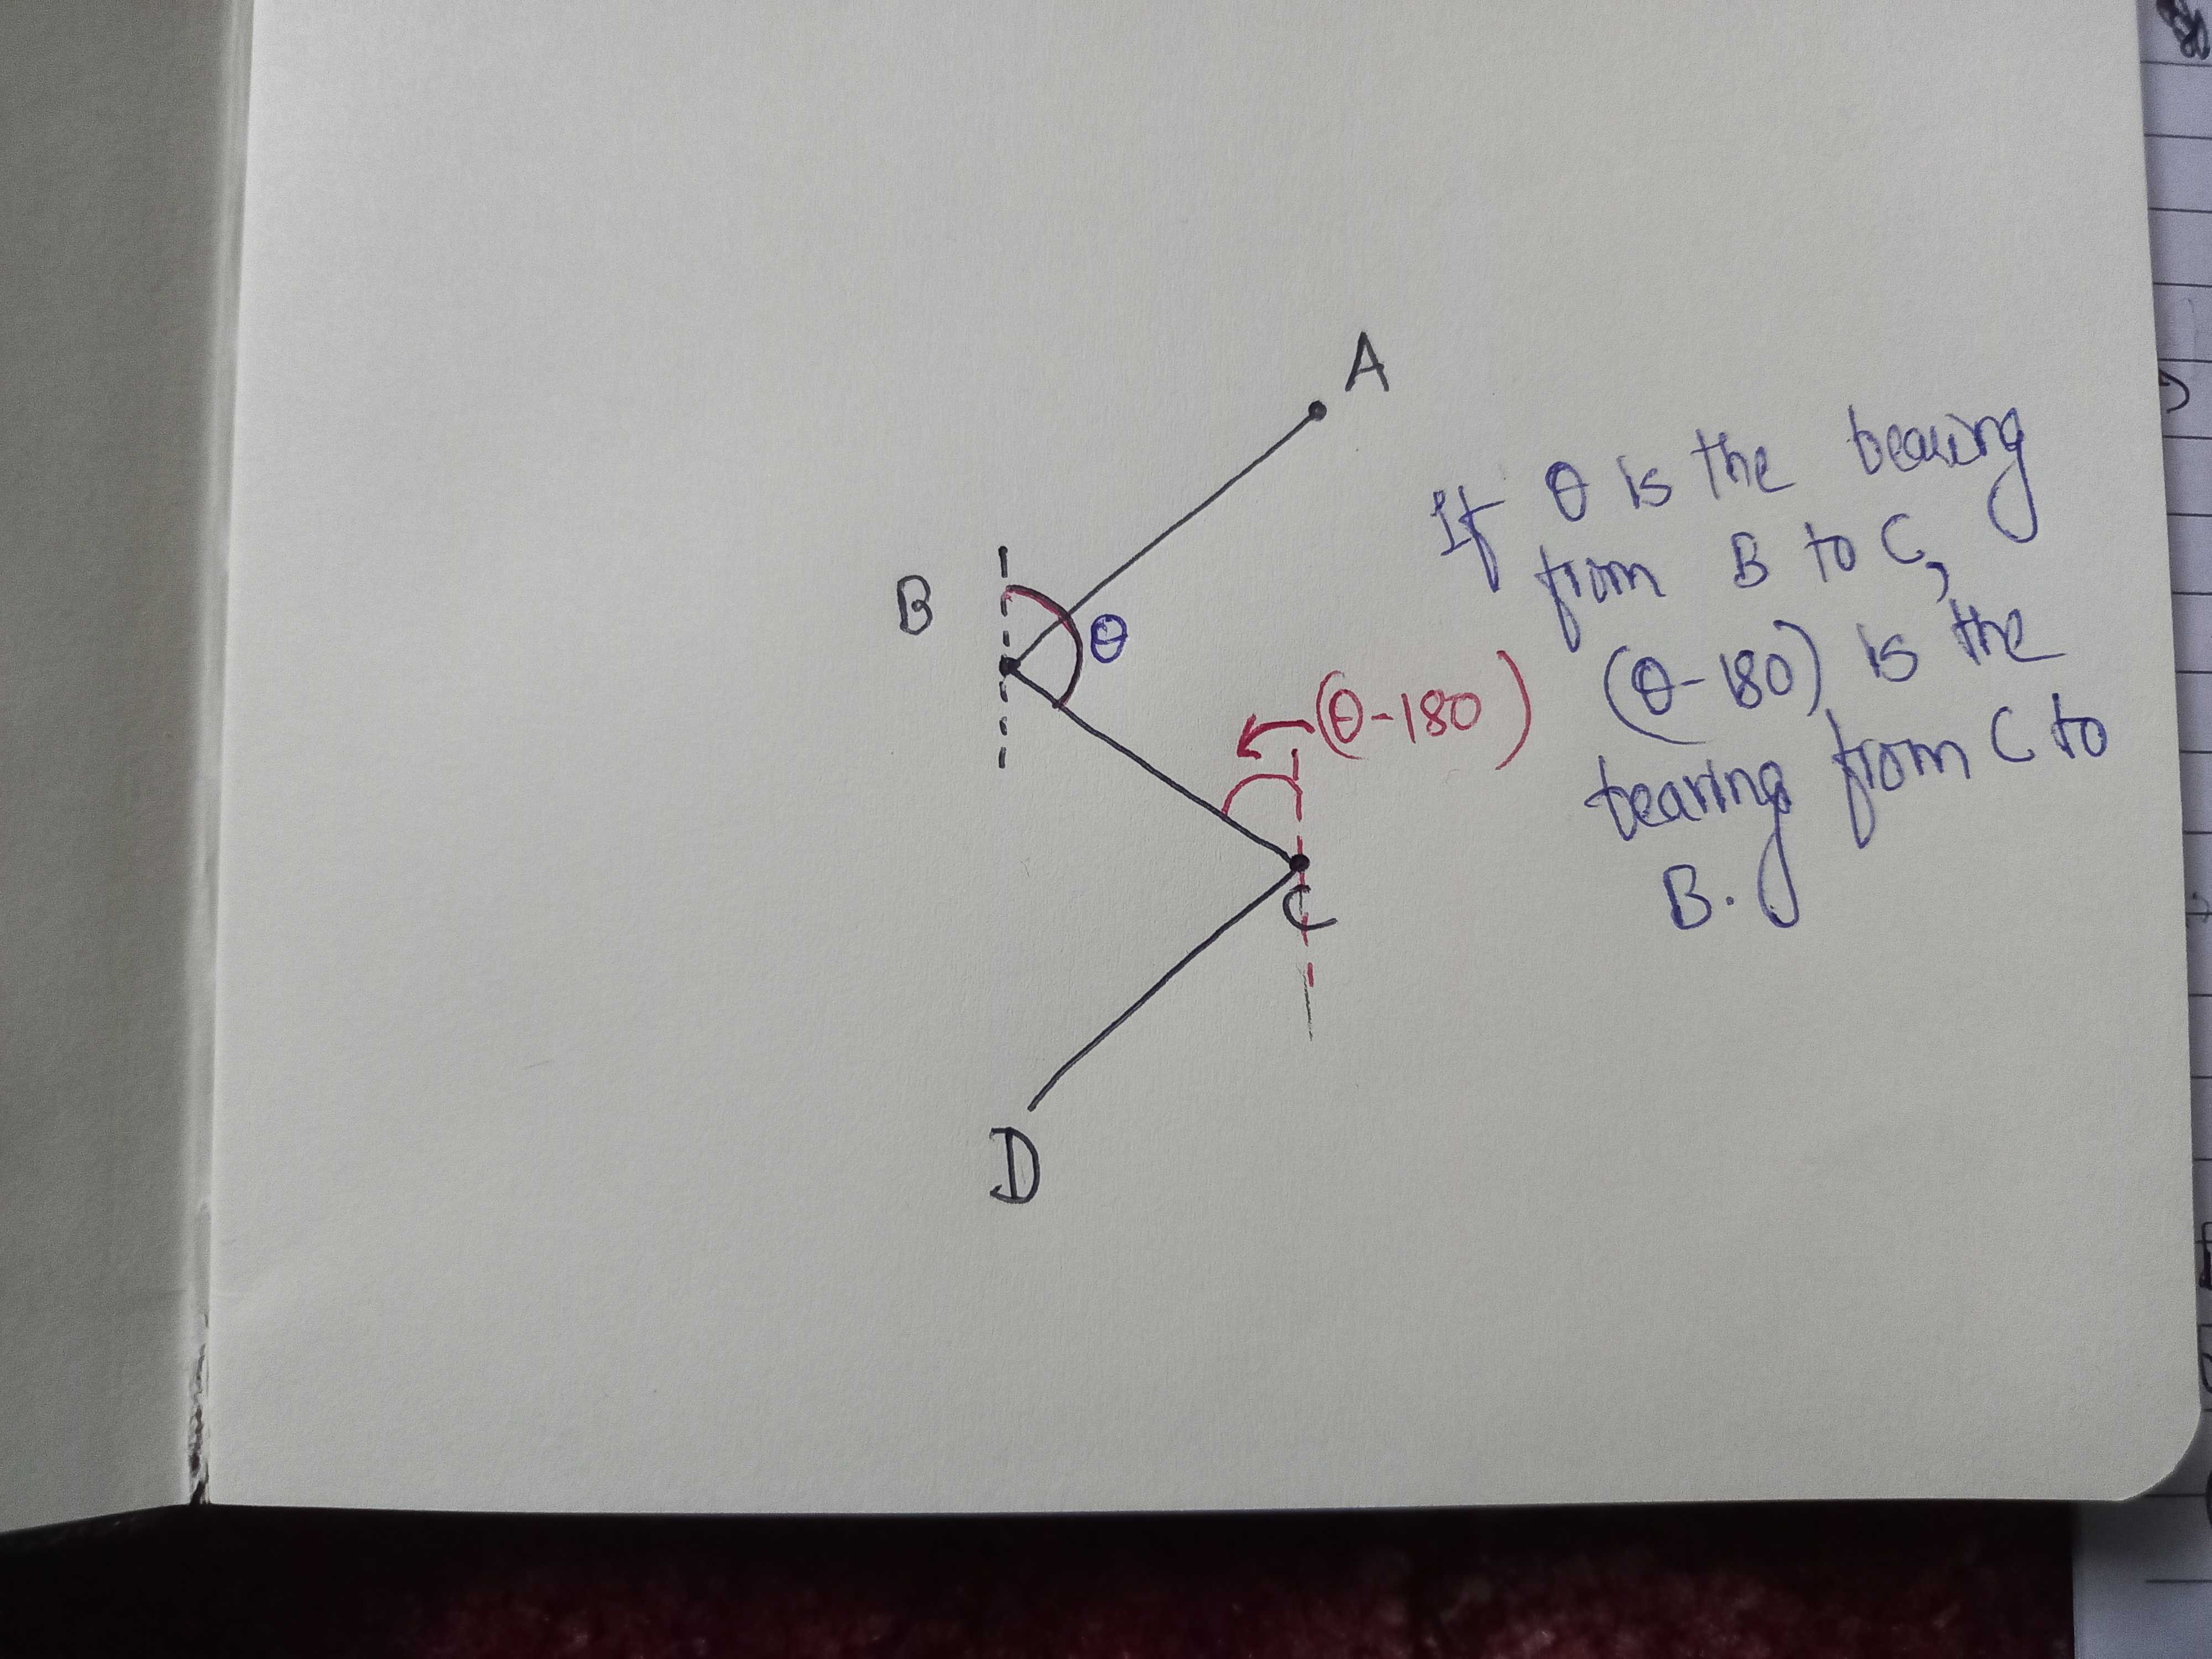 A
B
θ
(θ-180)
C
D
If θ is the bearing
from B to C,
(θ-180) is the
bearing from C to
B.